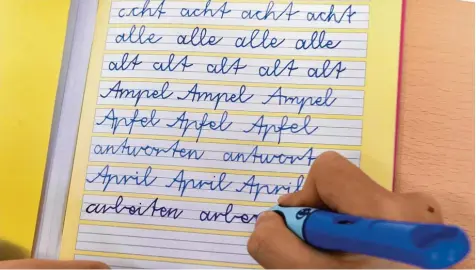 acht acht acht acht
alle alle alle alle
alt alt alt alt alt
Ampel Ampel Ampel
Apfel Apfel Apfel
antworten antwort
April April April
arbeiten arbei